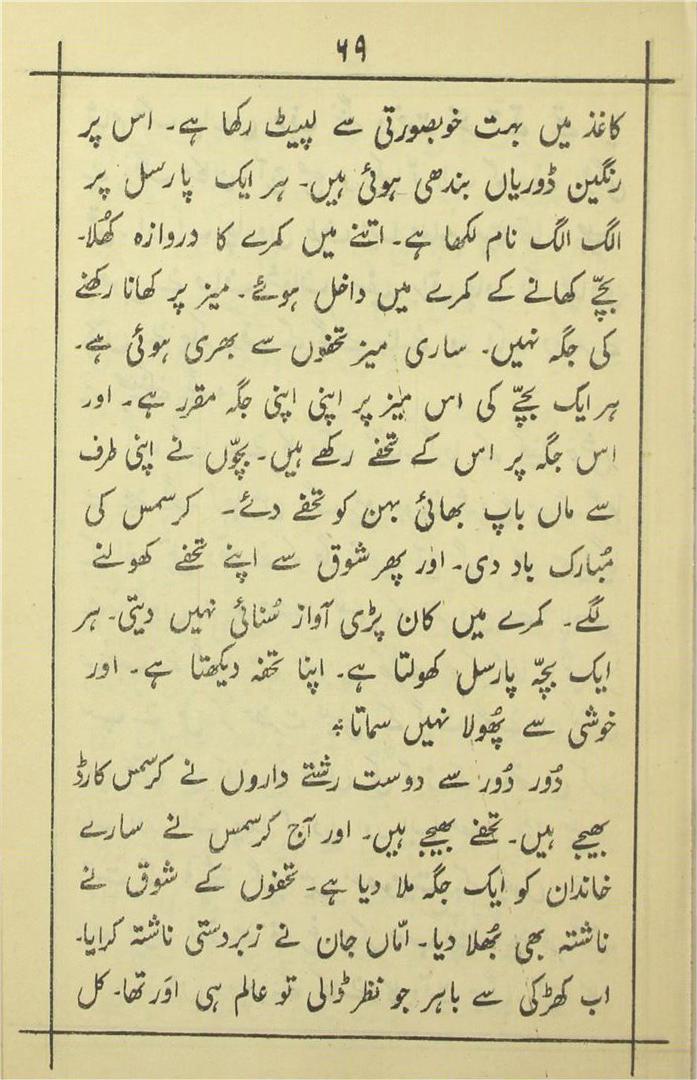 ۶۹
کاغذ میں بہت خوبصورتی سے لپیٹ رکھا ہے۔ اس پر
رنگین ڈوریاں بندھی ہوئی ہیں۔ ہر ایک پارسل پر
الگ الگ نام لکھا ہے۔ اتنے میں کمرے کا دروازہ کھُلا۔
بچّے کھانے کے کمرے میں داخل ہوئے۔ میز پر کھانا رکھنے
کی جگہ نہیں۔ ساری میز تحفوں سے بھری ہوئی ہے۔
ہر ایک بچّے کی اس میز پر اپنی اپنی جگہ مقرر ہے۔ اور
اس جگہ پر اس کے تحفے رکھے ہیں۔ بچّوں نے اپنی طرف
سے ماں باپ بھائی بہن کو تحفے دئے۔ کرسمس کی
مُبارک باد دی۔ اور پھر شوق سے اپنے تحفے کھولنے
لگے۔ کمرے میں کان پڑی آواز سُنائی نہیں دیتی۔ ہر
ایک بچّہ پارسل کھولتا ہے۔ اپنا تحفہ دیکھتا ہے۔ اور
خوشی سے پھُولا نہیں سماتا؞
دُور دُور سے دوست رشتے داروں نے کرسمس کارڈ
بھیجے ہیں۔ تحفے بھیجے ہیں۔ اور آج کرسمس نے سارے
خاندان کو ایک جگہ ملا دیا ہے۔ تحفوں کے شوق نے
ناشتہ بھی بھُلا دیا۔ امّاں جان نے زبردستی ناشتہ کرایا۔
اب کھڑکی سے باہر جو نظر ڈالی تو عالم ہی اوَر تھا۔ کل